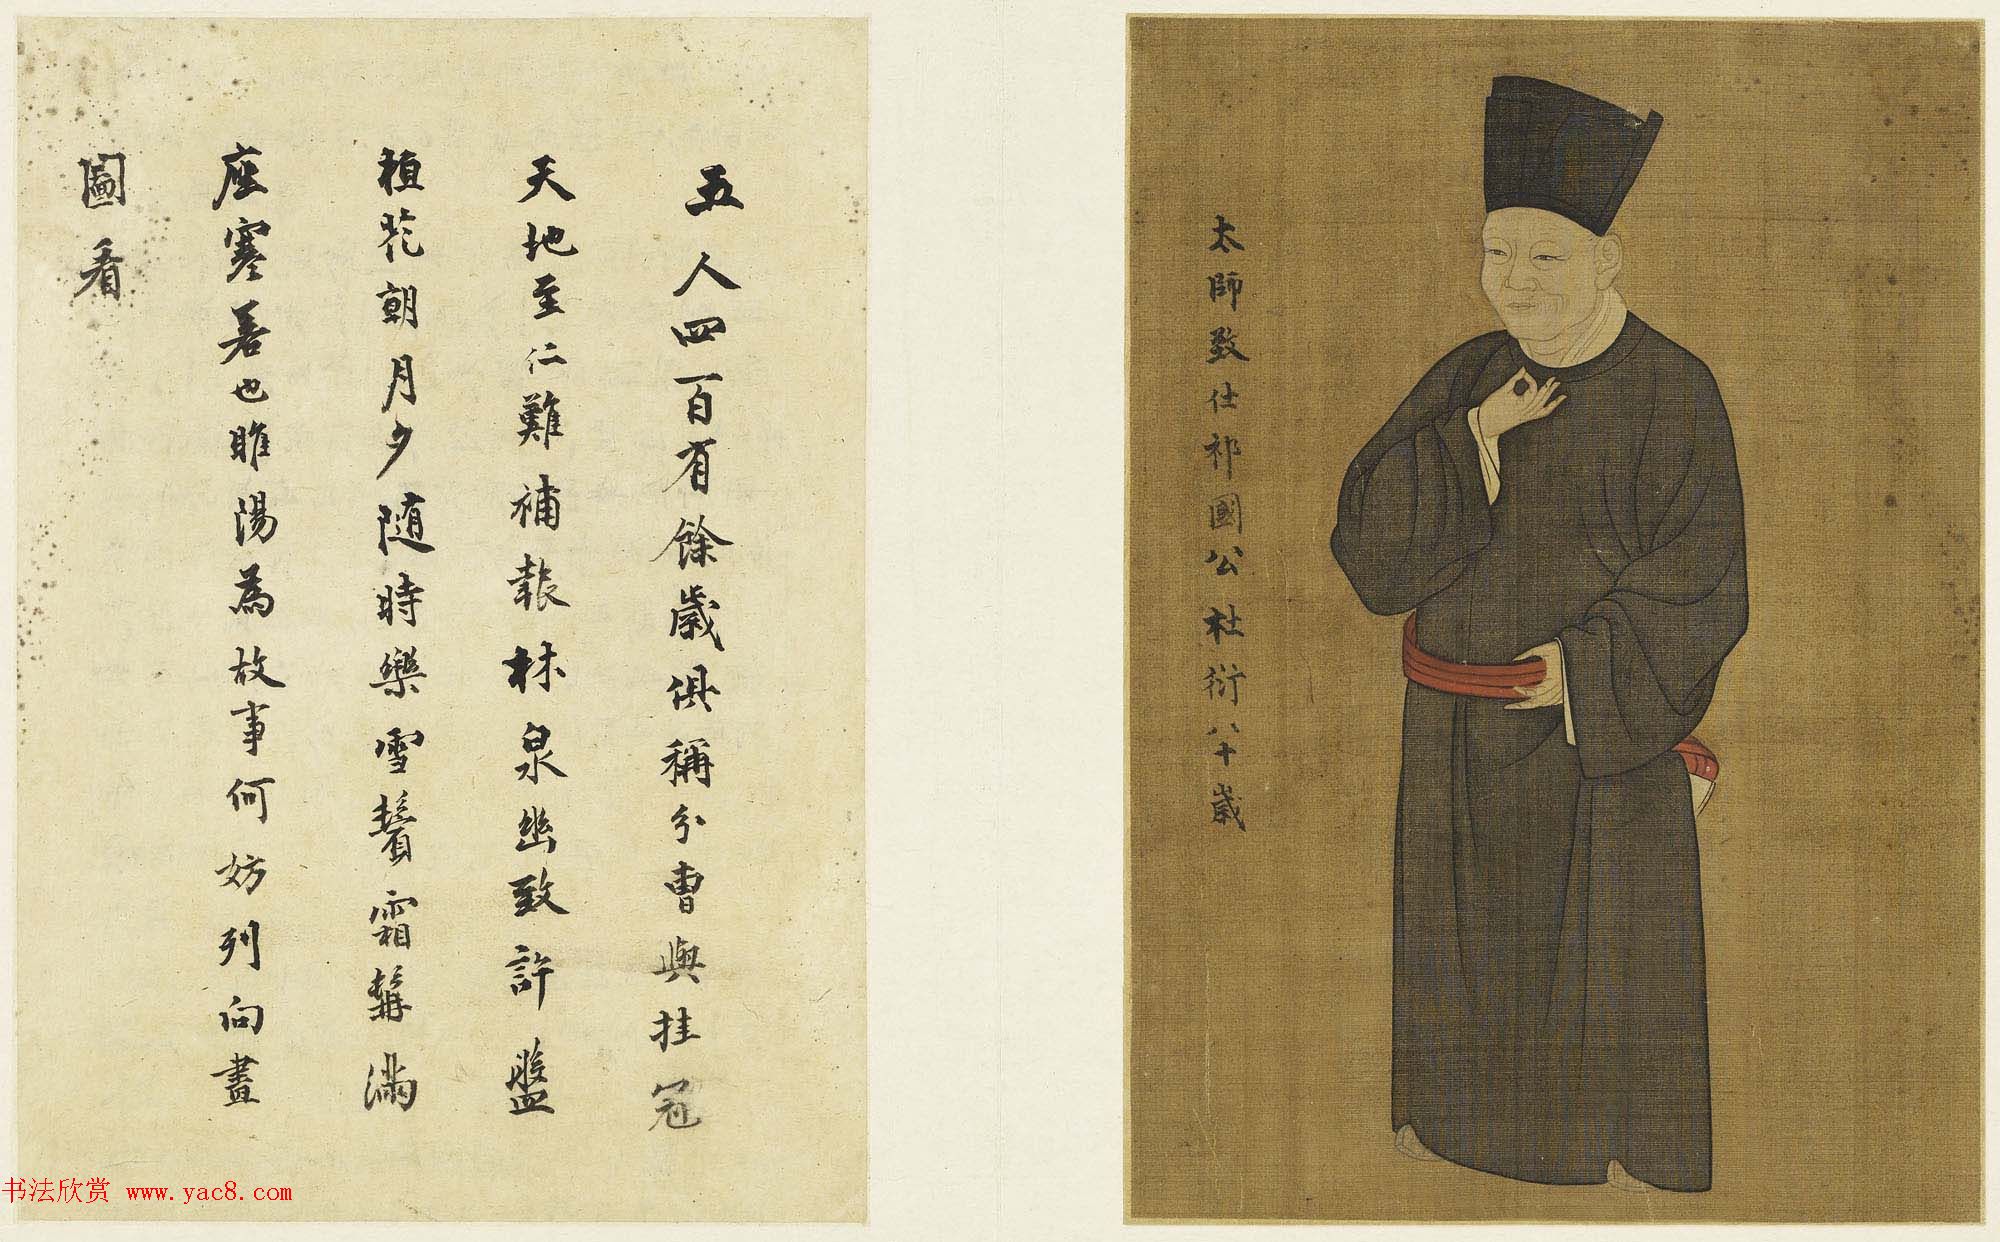 太師致仕祁國公杜衍八十歲
五人四百有餘歲俱稱分曹與挂冠
天地至仁難補報林泉幽致許盤
桓花朝月夕隨時樂雪鬢霜髯滿
座寒若也睢陽為故事何妨列向畫
圖看
书法欣赏 www.yac8.com